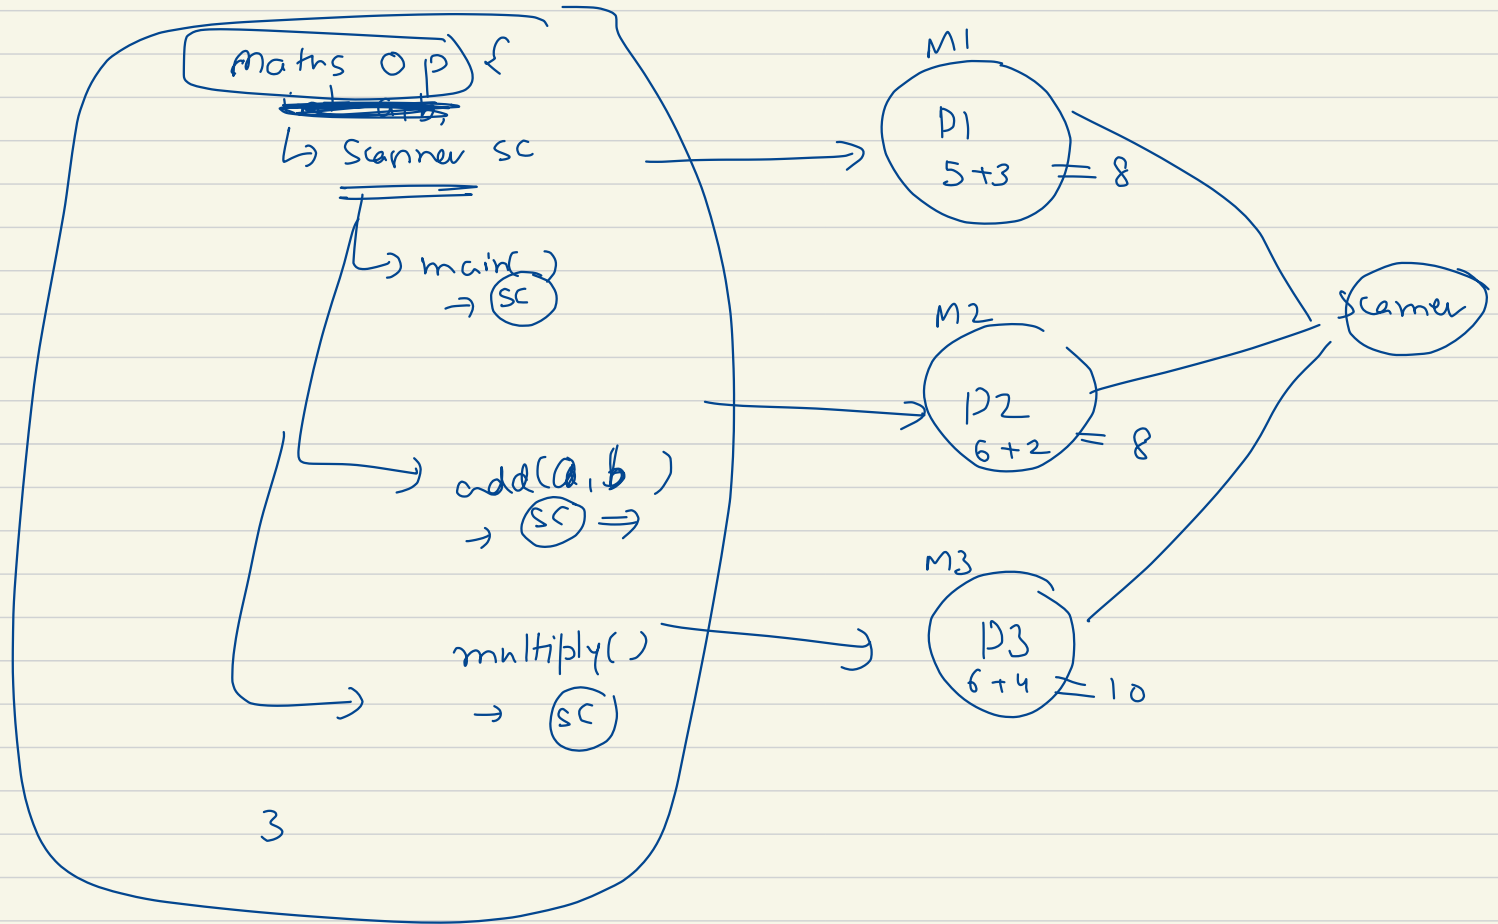 Maths Op {
Scanner sc
main()
→ sc
add(a,b)
→ sc ⇒
multiply()
→ sc
}
M1
P1
5+3 = 8
M2
P2
6+2 = 8
M3
P3
6+4 = 10
Scanner